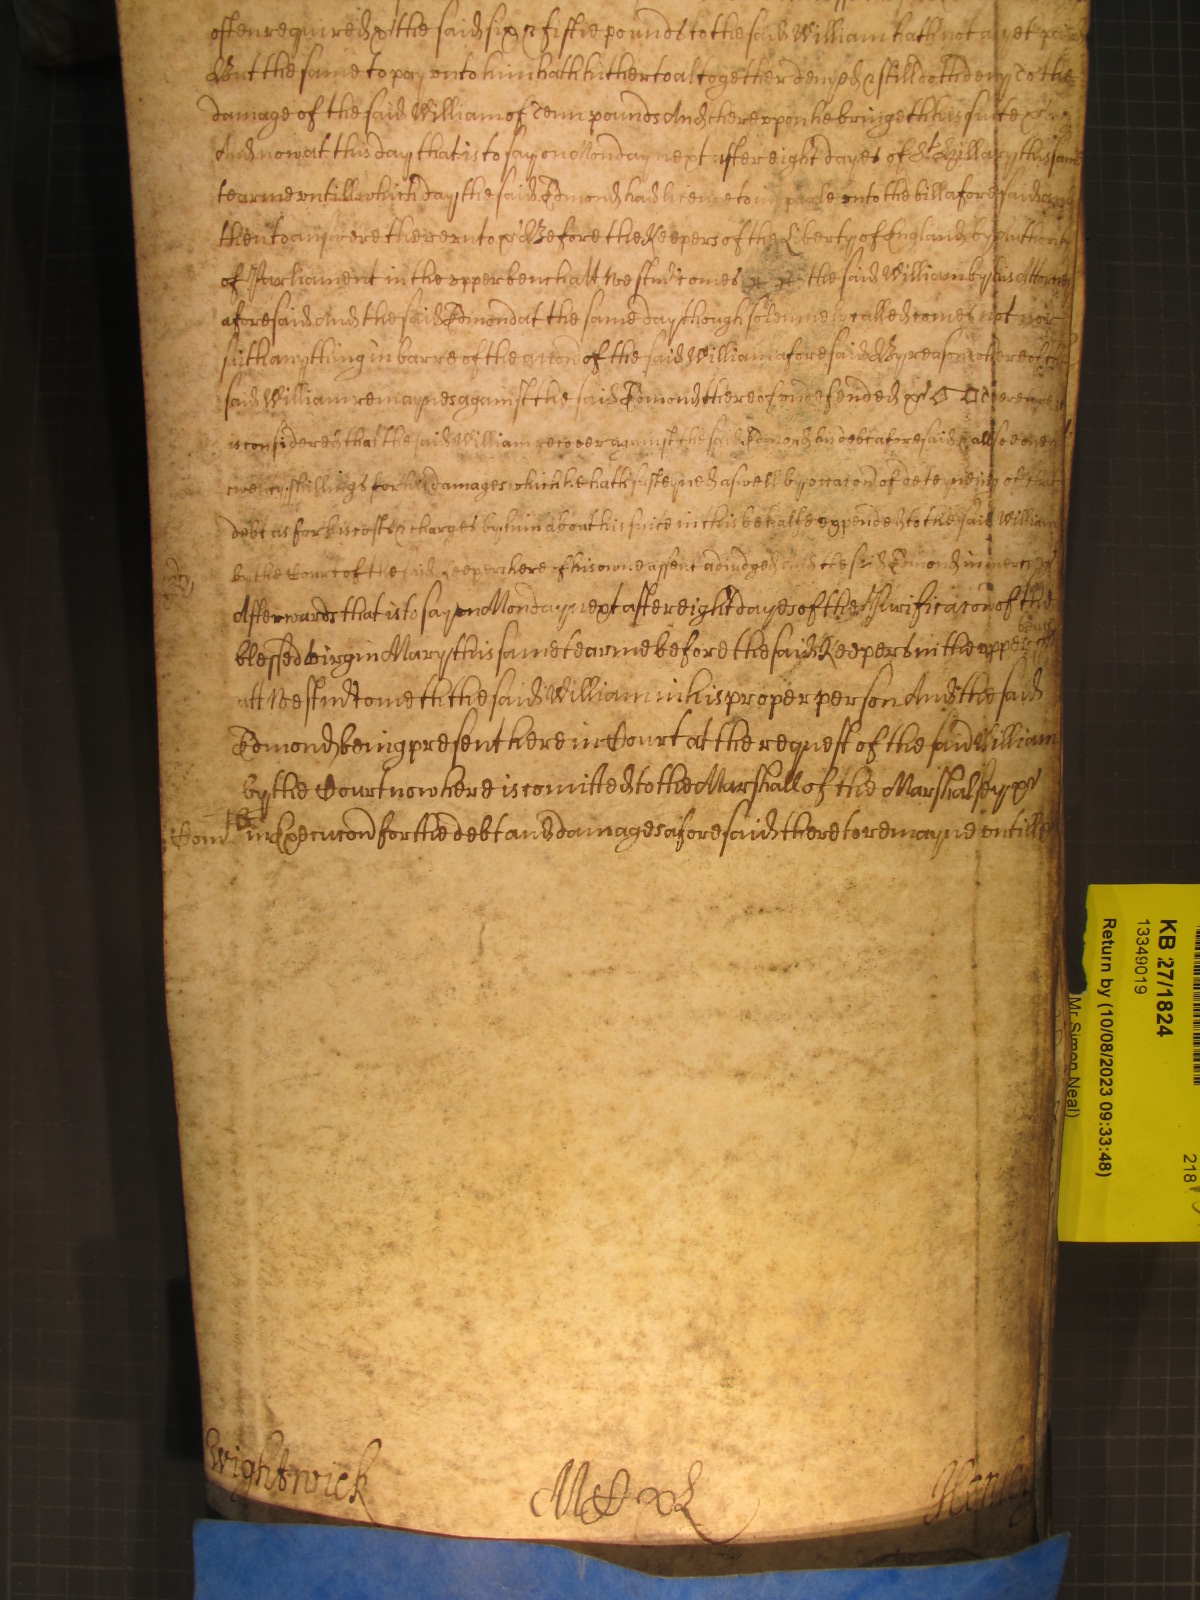 often required &c the said six & fiftie pounds to the said William hath not as yet paid
But the same to pay unto him hath hitherto altogether denyed & still doth deny To the
damage of the said William of Tenn pounds And thereupon he bringeth his suite &c
And now at this day that is to say on Monday next after eight dayes of St Hillary this same
tearme untill which day the said Edmond had licence to imparle unto the bill aforesaid and
then to answere thereunto &c Before the Keepers of the Liberty of England by authority
of Parliament in the upper bench att Westmr comes the said William by his Attorney
aforesaid And the said Edmond at the same day though solemnely called comes not nor
sith any thing in barre of the accon of the said William aforesaid By reason whereof the
said William remaynes against the said Edmond thereof undefended &c Therefore it
is considered that the said William recover against the said Edmond his debt aforesaid & allsoe
twenty shillings for his damages which he hath susteyned aswell by occacon of deteyneing of that
debt as for his costs & charges by him about his suite in this behalfe expended to the said William
by the Court of the said Keepers here of his owne assent adiudged And the said Edmond in mercy &c
mcy
Afterwards that is to say on Monday next after eight dayes of the Purificacon of the
blessed virgin Mary this same tearme before the said Keepers in the upper bench
att Westmr cometh the said William in his proper person And the said
Edmond being present here in Court at the request of the said William
by the Court now here is comitted to the Marshall of the Marshalsey &c
Comr in Execucon for the debt and damages aforesaid there to remayne untill &c
Wightwick
Henley
KB 27/1824
13349019
Return by (10/08/2023 09:33:48)
Mr Simon Neal)
218